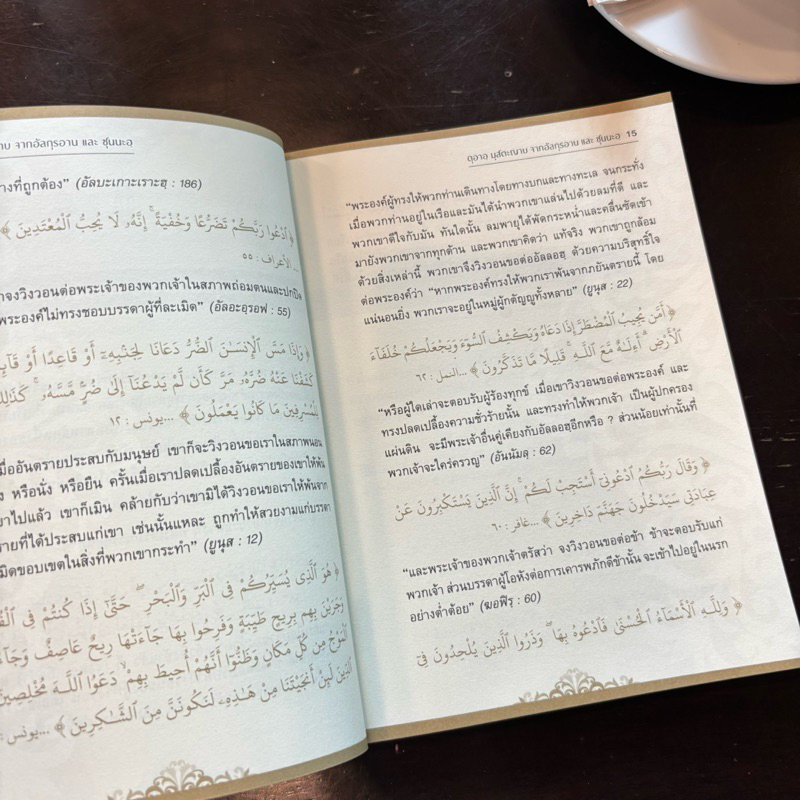 าบ จากอัลกุรอาน และ ซุนนะฮฺ
างที่ถูกต้อง” (อัลบะเกาะเราะฮฺ : 186)
﴿ ٱدْعُوا۟ رَبَّكُمْ تَضَرُّعًا وَخُفْيَةً ۚ إِنَّهُۥ لَا يُحِبُّ ٱلْمُعْتَدِينَ ﴾
... الأعراف : ٥٥
าจงวิงวอนต่อพระเจ้าของพวกเจ้าในสภาพถ่อมตนและปกปิด
พระองค์ไม่ทรงชอบบรรดาผู้ที่ละเมิด” (อัลอะอฺรอฟ : 55)
﴿ وَإِذَا مَسَّ ٱلْإِنسَـٰنَ ٱلضُّرُّ دَعَانَا لِجَنۢبِهِۦٓ أَوْ قَاعِدًا أَوْ قَآئِ
كَشَفْنَا عَنْهُ ضُرَّهُۥ مَرَّ كَأَن لَّمْ يَدْعُنَآ إِلَىٰ ضُرٍّ مَّسَّهُۥ ۚ كَذَٰلِكَ
لِلْمُسْرِفِينَ مَا كَانُوا۟ يَعْمَلُونَ ﴾ ...يونس : ١٢
มื่ออันตรายประสบกับมนุษย์ เขาก็จะวิงวอนขอเราในสภาพนอน
ง หรือนั่ง หรือยืน ครั้นเมื่อเราปลดเปลื้องอันตรายของเขาให้พ้น
ขาไปแล้ว เขาก็เมิน คล้ายกับว่าเขามิได้วิงวอนขอเราให้พ้นจาก
รายที่ได้ประสบแก่เขา เช่นนั้นแหละ ถูกทำให้สวยงามแก่บรรดา
มิดขอบเขตในสิ่งที่พวกเขากระทำ” (ยูนุส : 12)
﴿ هُوَ ٱلَّذِى يُسَيِّرُكُمْ فِى ٱلْبَرِّ وَٱلْبَحْرِ ۖ حَتَّىٰٓ إِذَا كُنتُمْ فِى ٱلْفُ
وَجَرَيْنَ بِهِم بِرِيحٍ طَيِّبَةٍ وَفَرِحُوا۟ بِهَا جَآءَتْهَا رِيحٌ عَاصِفٌ وَجَآءَ
ٱلْمَوْجُ مِن كُلِّ مَكَانٍ وَظَنُّوٓا۟ أَنَّهُمْ أُحِيطَ بِهِمْ ۙ دَعَوُا۟ ٱللَّهَ مُخْلِصِينَ
ٱلدِّينَ لَئِنْ أَنجَيْتَنَا مِنْ هَـٰذِهِۦ لَنَكُونَنَّ مِنَ ٱلشَّـٰكِرِينَ ﴾ ...يونس :
ดุอาอฺ มุสตะญาบ จากอัลกุรอาน และ ซุนนะฮฺ 15
“พระองค์ผู้ทรงให้พวกท่านเดินทางโดยทางบกและทางทะเล จนกระทั่ง
เมื่อพวกท่านอยู่ในเรือและมันได้นำพวกเขาแล่นไปด้วยลมที่ดี และ
พวกเขาดีใจกับมัน ทันใดนั้น ลมพายุได้พัดกระหน่ำและคลื่นซัดเข้า
มายังพวกเขาจากทุกด้าน และพวกเขาคิดว่า แท้จริง พวกเขาถูกล้อม
ด้วยสิ่งเหล่านี้ พวกเขาจึงวิงวอนขอต่ออัลลอฮฺ ด้วยความบริสุทธิ์ใจ
ต่อพระองค์ว่า “หากพระองค์ทรงให้พวกเราพ้นจากภยันตรายนี้ โดย
แน่นอนยิ่ง พวกเราจะอยู่ในหมู่ผู้กตัญญูทั้งหลาย” (ยูนุส : 22)
﴿ أَمَّن يُجِيبُ ٱلْمُضْطَرَّ إِذَا دَعَاهُ وَيَكْشِفُ ٱلسُّوٓءَ وَيَجْعَلُكُمْ خُلَفَآءَ
ٱلْأَرْضِ ۗ أَءِلَـٰهٌ مَّعَ ٱللَّهِ ۚ قَلِيلًا مَّا تَذَكَّرُونَ ﴾ ...النمل : ٦٢
“หรือผู้ใดเล่าจะตอบรับผู้ร้องทุกข์ เมื่อเขาวิงวอนขอต่อพระองค์ และ
ทรงปลดเปลื้องความชั่วร้ายนั้น และทรงทำให้พวกเจ้า เป็นผู้ปกครอง
แผ่นดิน จะมีพระเจ้าอื่นคู่เคียงกับอัลลอฮฺอีกหรือ ? ส่วนน้อยเท่านั้นที่
พวกเจ้าจะใคร่ครวญ” (อันนัมลฺ : 62)
﴿ وَقَالَ رَبُّكُمُ ٱدْعُونِىٓ أَسْتَجِبْ لَكُمْ ۚ إِنَّ ٱلَّذِينَ يَسْتَكْبِرُونَ عَنْ
عِبَادَتِى سَيَدْخُلُونَ جَهَنَّمَ دَاخِرِينَ ﴾ ...غافر : ٦٠
“และพระเจ้าของพวกเจ้าตรัสว่า จงวิงวอนขอต่อข้า ข้าจะตอบรับแก่
พวกเจ้า ส่วนบรรดาผู้โอหังต่อการเคารพภักดีข้านั้น จะเข้าไปอยู่ในนรก
อย่างต่ำต้อย” (ฆอฟิรฺ : 60)
﴿ وَلِلَّهِ ٱلْأَسْمَآءُ ٱلْحُسْنَىٰ فَٱدْعُوهُ بِهَا ۖ وَذَرُوا۟ ٱلَّذِينَ يُلْحِدُونَ فِىٓ